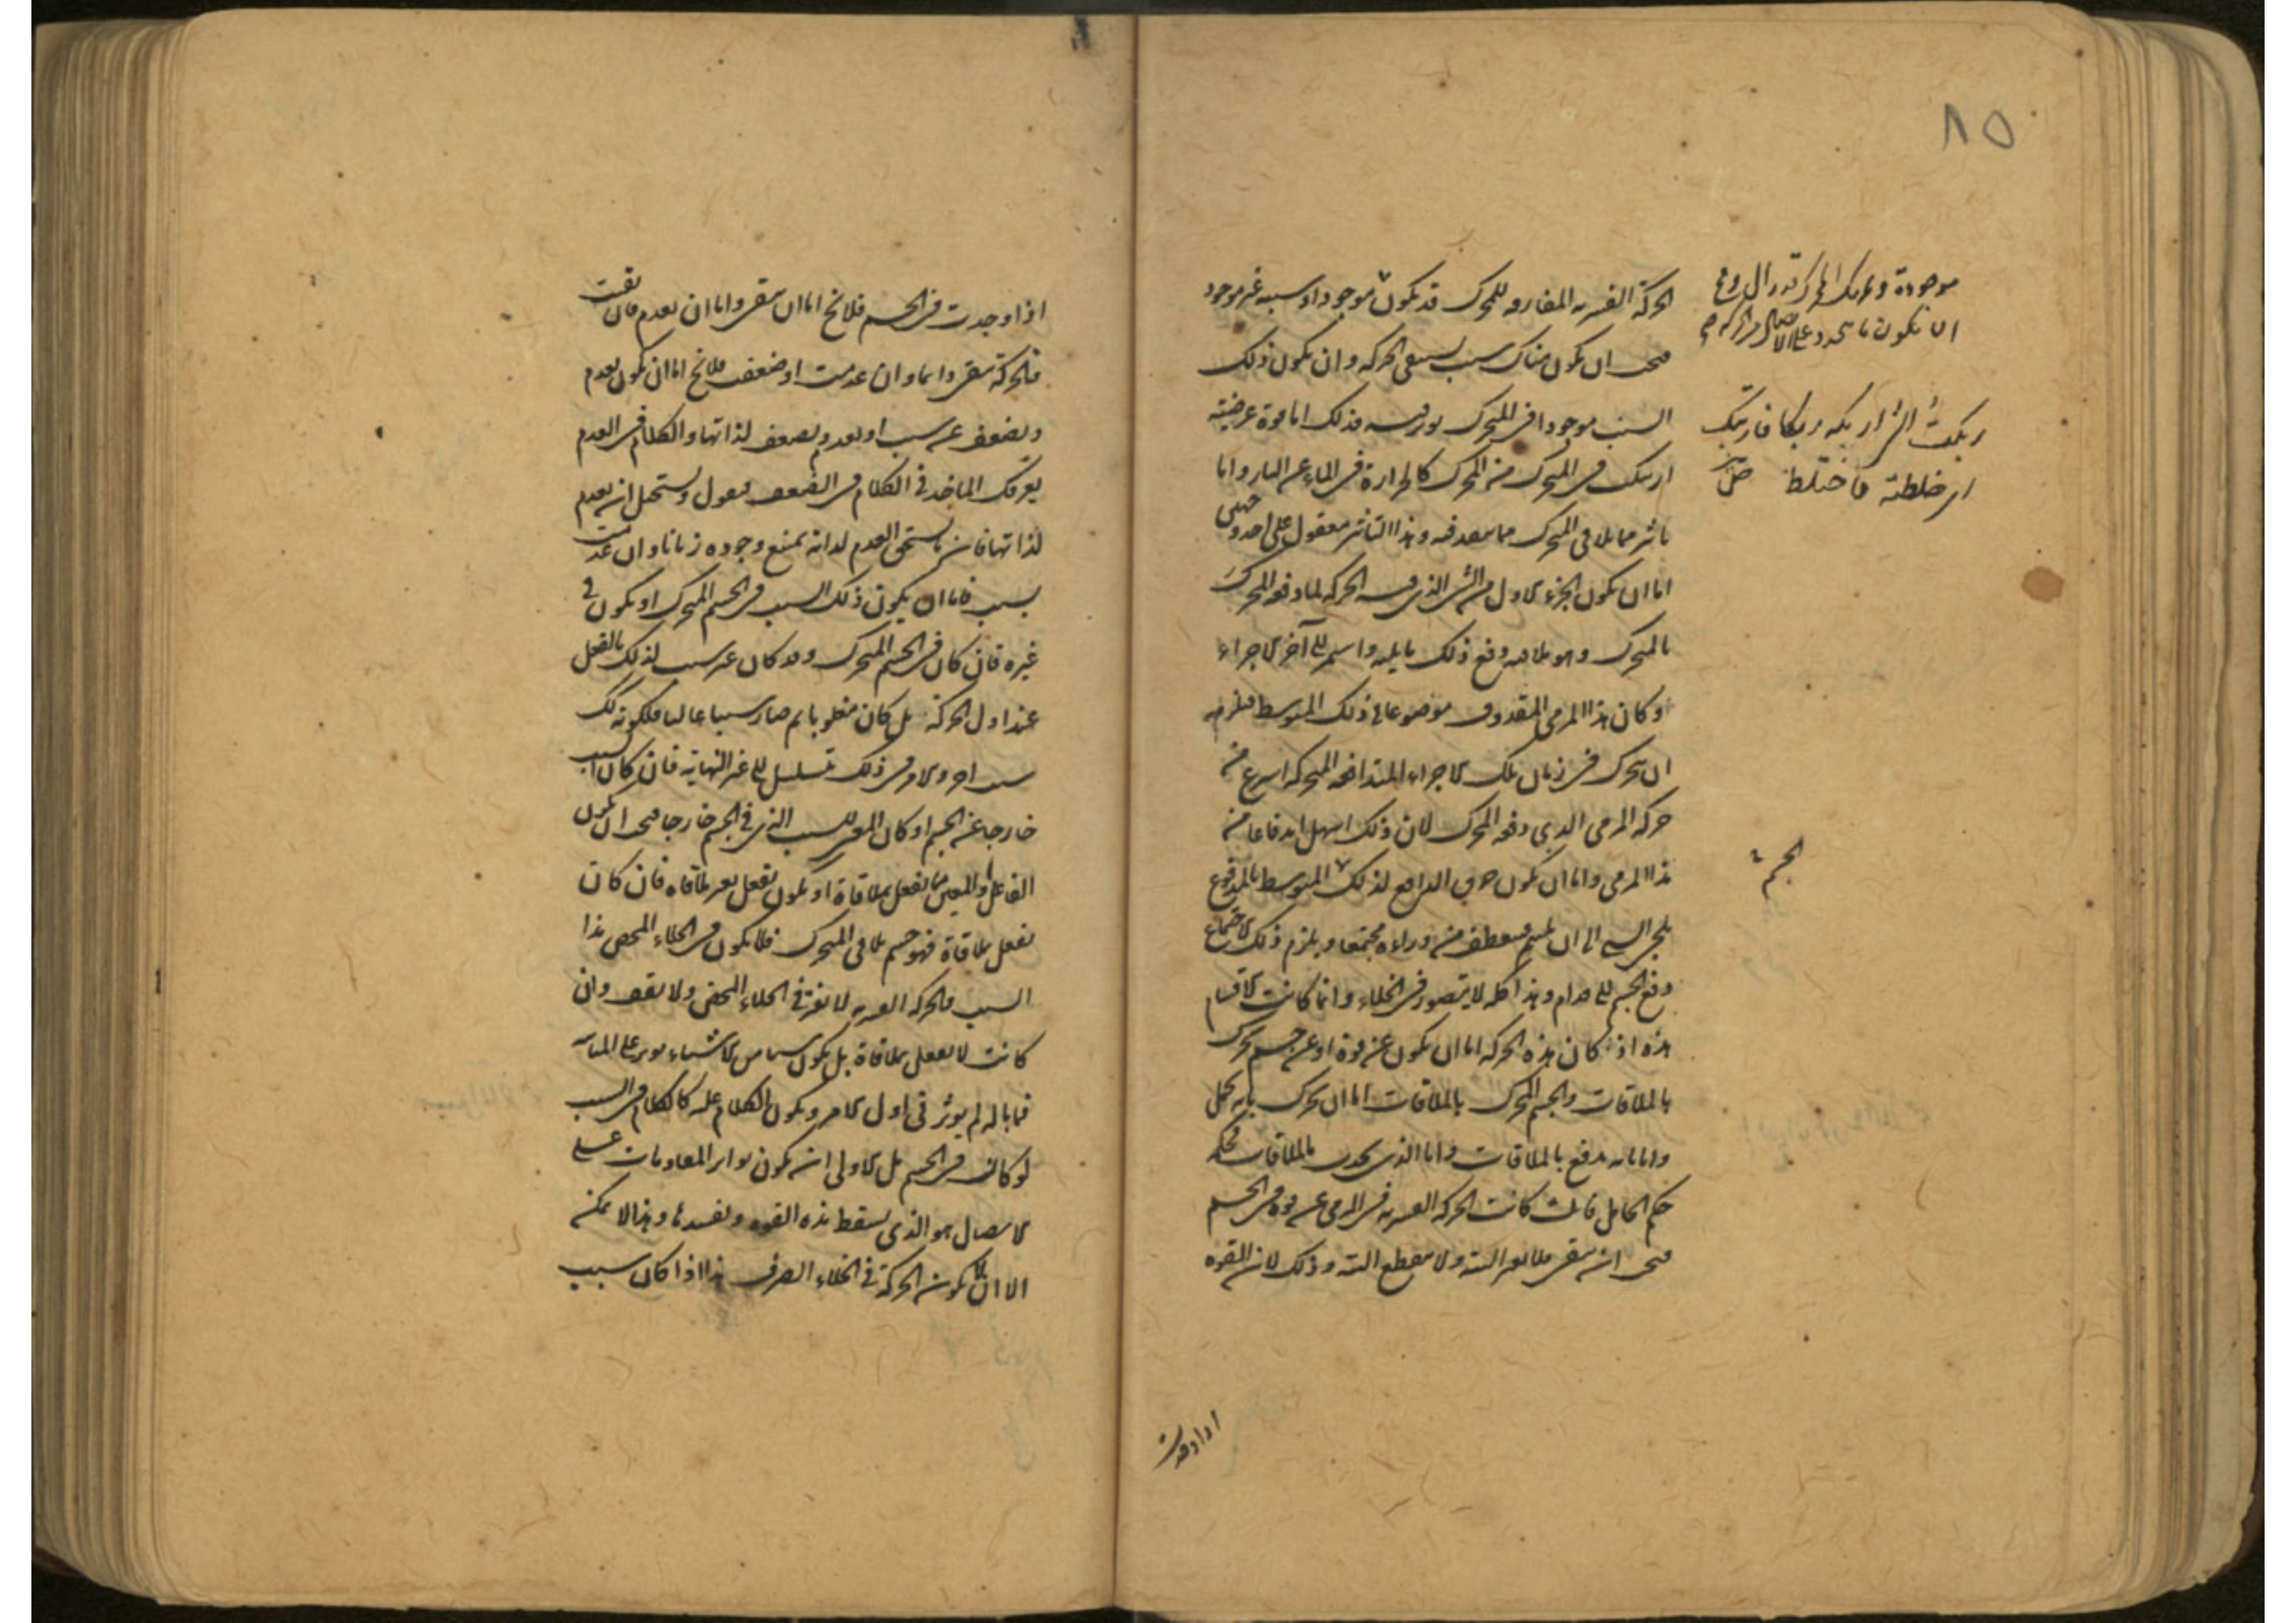 ٨٥
الحركة القسرية المفارقة للمحرك قد تكون موجودا وسببه غير موجود
فيجب ان يكون هناك سبب يستبقي الحركة وان يكون ذلك
السبب موجودا في المتحرك يؤثر فيه فذلك اما قوة عرضية
ارتبكت في المتحرك من المحرك كالحرارة في الماء عن النار واما
تاثير مما يلاقي المتحرك مما ينفذ فيه وهذا التاثير معقول على احد وجهين
اما ان يكون الجزء الاول من الشئ الذي فيه الحركة لما دفعه المحرك
بالمتحرك وهو ملاقيه دفع ذلك ما يليه واستمر الى آخر الاجزاء
وكان هذا المرمي المقذوف موضوعا في ذلك المتوسط فيلزمه
ان يتحرك في زمان تلك الاجزاء المتدافعة المتحركة اسرع من
حركة المرمي الذي دفعه المحرك لان ذلك اسهل اندفاعا من
هذا المرمي واما ان يكون خرق الدافع لذلك المتوسط بالمدفوع
يلجئ الى ان يلتئم فينعطف من وراءه مجتمعا ويلزم ذلك الاجتماع
دفع الجسم الى قدام وهذا كله لا يتصور في الخلاء وانما كانت الاقسام
هذه اذ كان هذه الحركة اما ان يكون عن قوة او عن جسم يحرك
بالملاقات والجسم المحرك بالملاقات اما ان يحرك بانه يحمل
واما بانه يدفع بالملاقات واما الذي يجذب بالملاقات فحكمه
حكم الحامل فان كانت الحركة القسرية في المرمي عن قوة في الجسم
فيجب ان يبقى فلا يفتر البتة ولا ينقطع البتة وذلك لان القوة
موجودة وتحريك المحرك قد زال
الا ان يكون ما يتجدد على الاتصال
ربكت الشئ اربكه ربكا فارتبك
اي خلطته فاختلط
الجسم
اذا وجدت
اذا وجدت في الجسم فلا يخ اما ان يبقى واما ان يعدم فان بقيت
فالحركة يبقى دائما وان عدمت او ضعفت فلا يخ اما ان يكون يعدم
ويضعف عن سبب او يعدم ويضعف لذاتها والكلام في العدم
يعرفك الماخذ في الكلام في الضعف فنقول ويستحيل ان يعدم
لذاتها فان ما يستحق العدم لذاته يمتنع وجوده زمانا وان عدمت
بسبب فاما ان يكون ذلك السبب في الجسم المتحرك او يكون في
غيره فان كان في الجسم المتحرك وقد كان غير سبب لذلك بالفعل
عند اول الحركة بل كان مغلوبا ثم صار سببا غالبا فلكونه كذلك
سبب اخر والامر في ذلك يتسلسل الى غير النهاية فان كان السبب
خارجا عن الجسم او كان المعين للسبب الذي في الجسم خارجا فيجب ان يكون
الفاعل او المعين مما يفعل بملاقاة او يكون يفعل بغير ملاقاة فان كان
يفعل بملاقاة فهو جسم يلاقي المتحرك فلا يكون في الخلاء المحض هذا
السبب فالحركة القسرية لا تفتر في الخلاء المحض ولا تقف وان
كانت لا يفعل بملاقاة بل يكون شيئا من الاشياء يؤثر على المباينة
فما باله لم يؤثر في اول الامر ويكون الكلام عليه كالكلام في السبب
لو كان في الجسم بل الاولى ان يكون تواتر المقاومات على
الاتصال هو الذي يسقط هذه القوة ويفسدها وهذا لا يمكن
الا ان لا تكون الحركة في الخلاء الصرف هذا اذا كان سبب